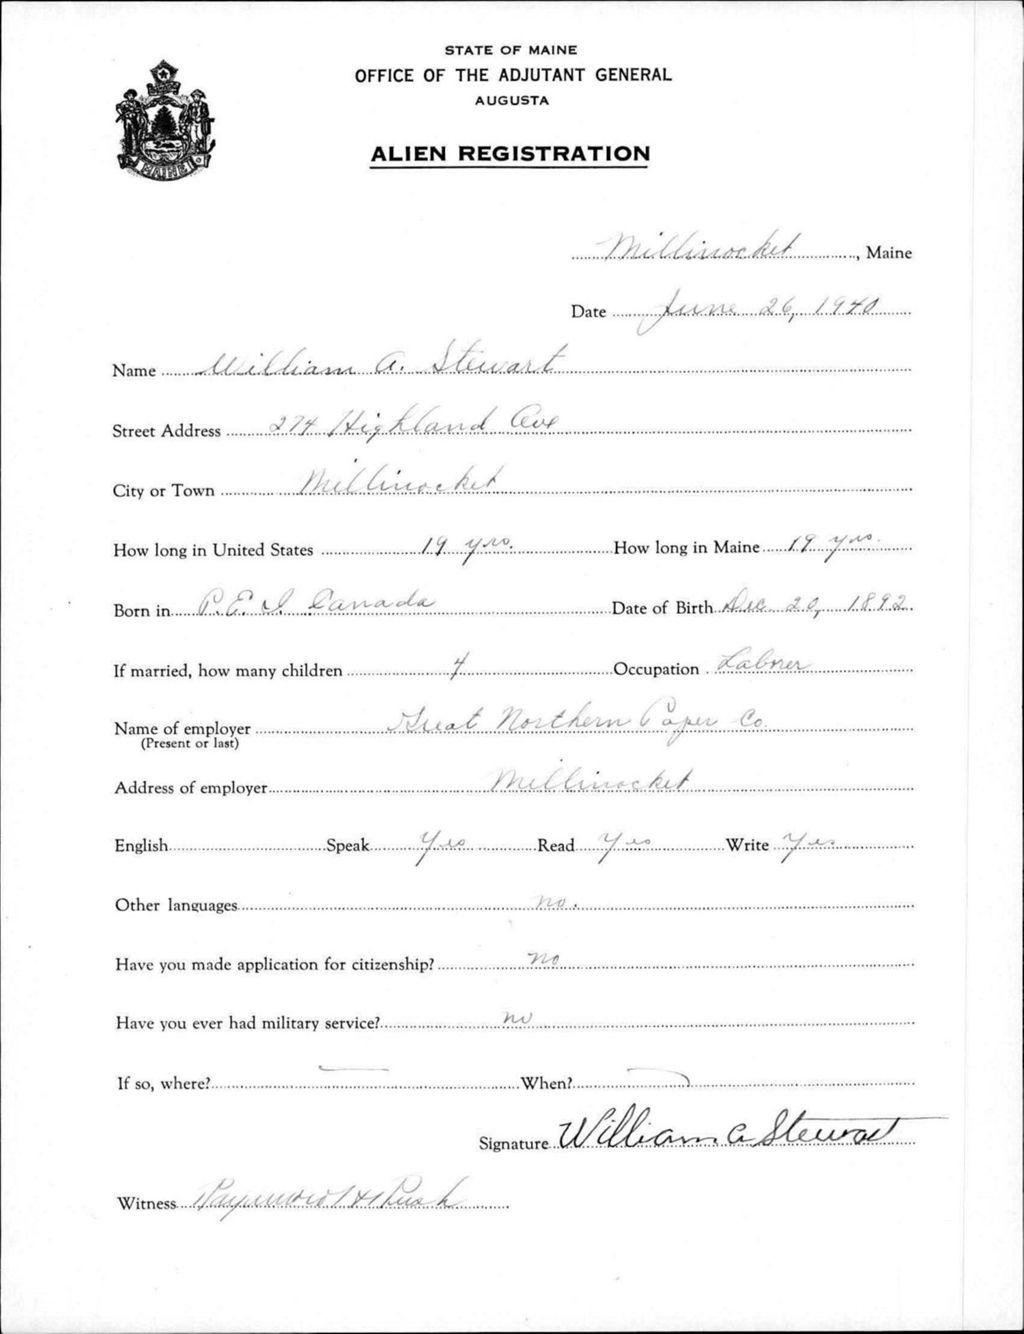 STATE OF MAINE
OFFICE OF THE ADJUTANT GENERAL
AUGUSTA
ALIEN REGISTRATION
MAINE
Millinocket, Maine
Date June 26, 1940
Name William A. Stewart
Street Address 274 Highland Ave
City or Town Millinocket
How long in United States 19 yrs. How long in Maine 19 yrs.
Born in P.E.I. Canada Date of Birth Dec. 20, 1892
If married, how many children 4 Occupation Laborer
Name of employer Great Northern Paper Co.
(Present or last)
Address of employer Millinocket
English Speak Yes Read Yes Write Yes
Other languages no.
Have you made application for citizenship? no
Have you ever had military service? no
If so, where? When?
Signature William A Stewart
Witness Raymond H Rush